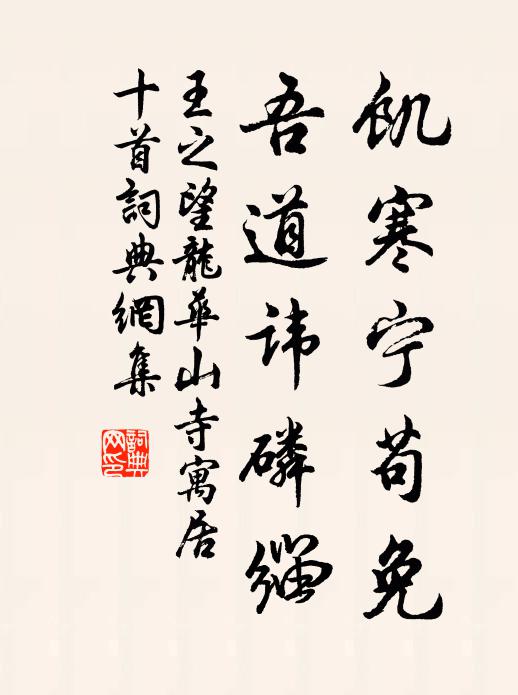 飢寒宁苟免
吾道讳磷缁
王之望龍華山寺寓居
十首詞典網集
詞典
网印